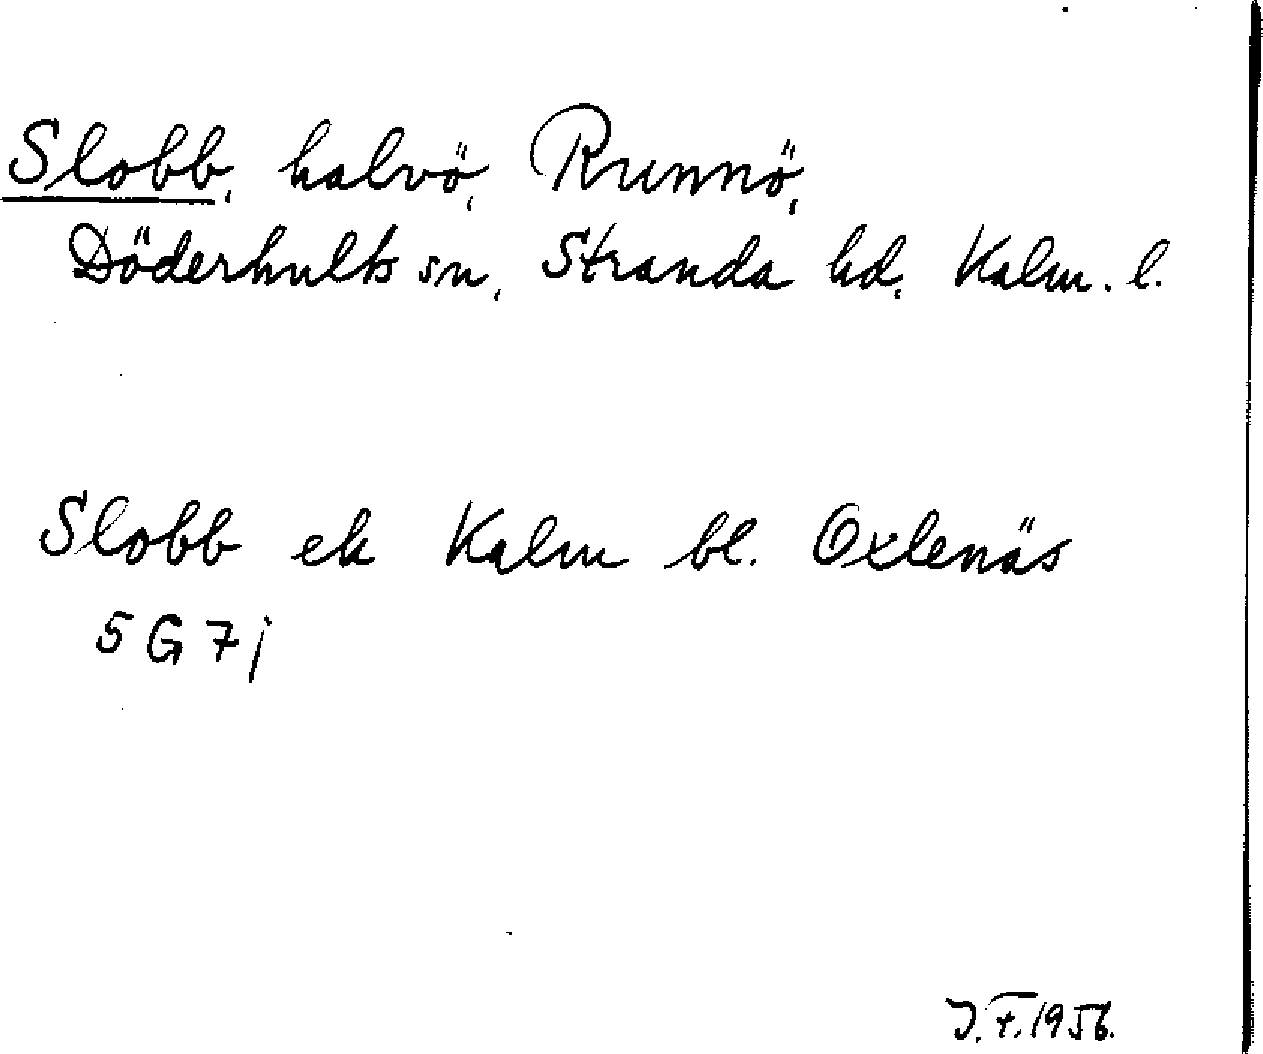 Slobb, halvö, Runnö,
Döderhults sn, Stranda hd, Kalm. l.
Slobb ek Kalm bl. Oxlenäs
5 G 7 j
J. F. 1956.